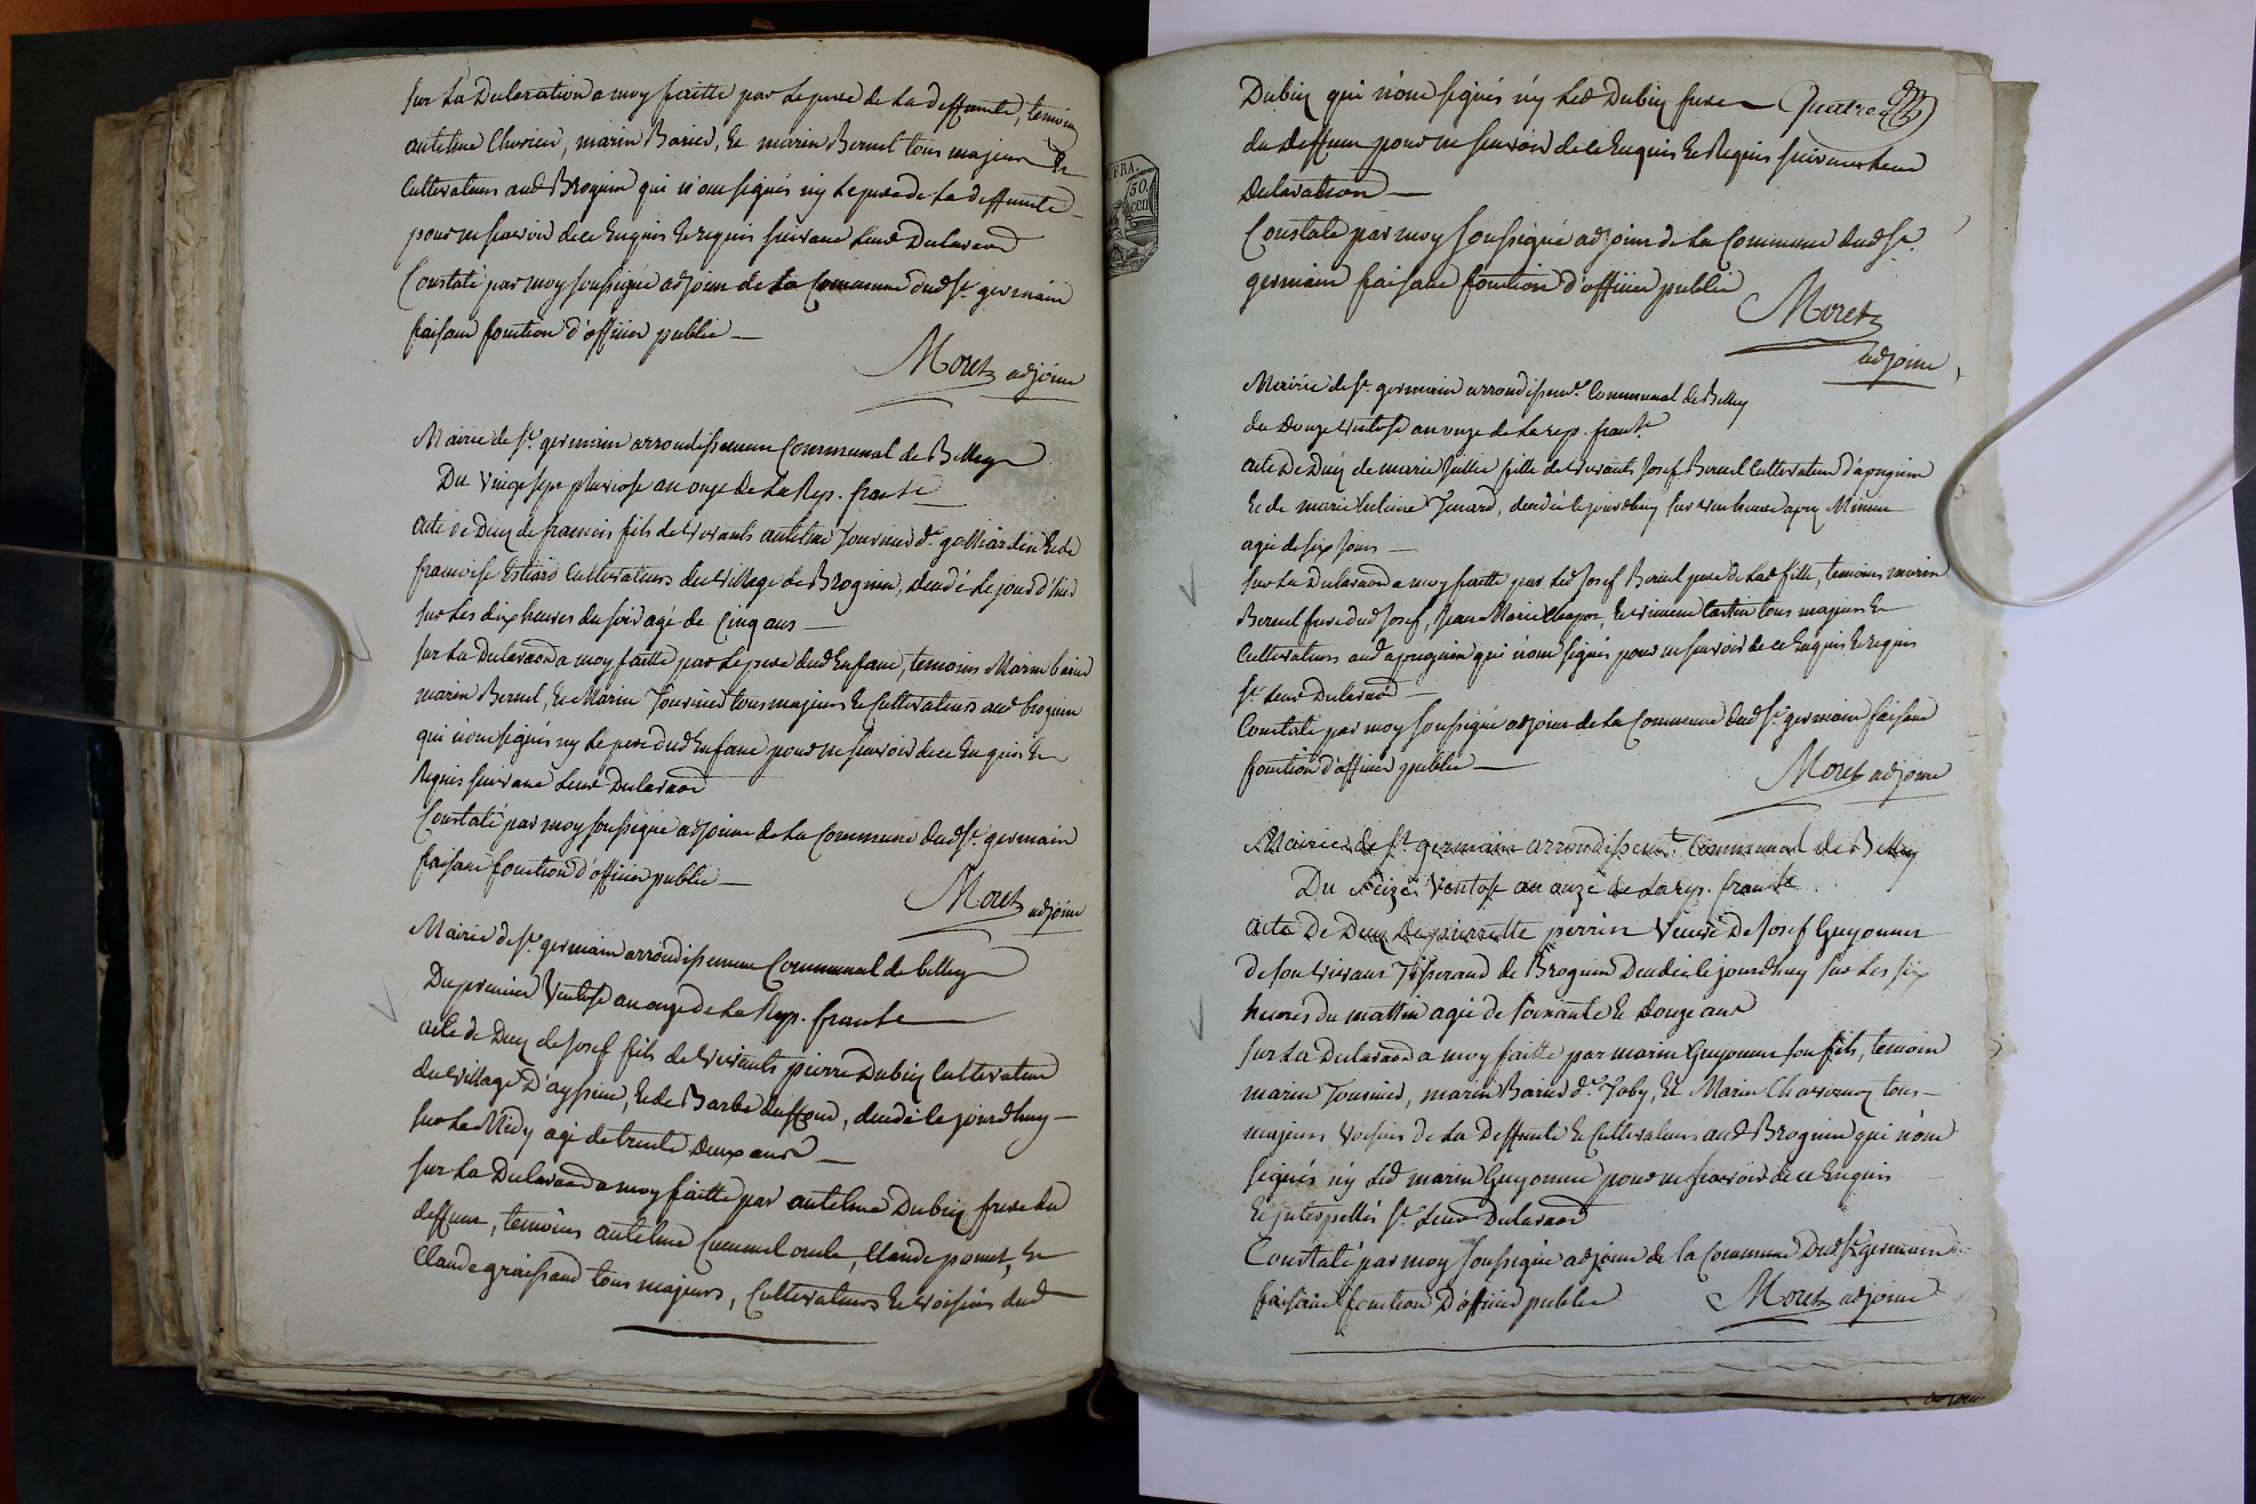 sur La Declaration a moy faitte par Le pere de La deffunte, temoins
antelme Chevrier, marin Barier, Et marin Bernel tous majeurs Et
Cultivateurs aud Brognin qui n'ont signés ny Le pere de La deffunte
pour ne scavoir de ce Enquis Et requis suivant Leur Declaraõn
Constaté par moy soussigné adjoint de La Commune dud St. germain
faisant fonction d'officier public
Moret adjoint
Mairie de St. germain arrondissement Communal de Belley
Du vingt sept pluviose an onze de La Rep. franse
acte de Deces de francois fils de vivants antelme Tournier dt. galliardin Et de
francoise Cultivateurs du village de Brognin, decedé Le jour d'hier
sur Les dix heures du soir agé de Cinq ans
sur La Declaraõn a moy faitte par Le pere dud Enfant, temoins Marin barier
marin Bernel, Et Marin Tournier tous majeurs Et Cultivateurs aud brognin
qui n'ont signés ny Le pere dud Enfant pour ne scavoir de ce Enquis Et
Requis suivant Leur Declaraõn
Constaté par moy soussigné adjoint de La Commune dud St. germain
faisant fonction d'officier public
Moret adjoint
Mairie de St. germain arrondissement Communal de belley
Du premier Ventose an onze de La Rep. franse
acte de Deces de Josef fils de vivants pierre Dubiez Cultivateur
du village D'ayssieu, Et de Barbe duffour, decedé le jourdhuy
sur Le Midy agé de trente Deux ans
sur La Declaraõn a moy faitte par antelme Dubiez frere du
deffunt, temoins antelme oncle, Claude pomet, Et
Claude graissand tous majeurs, Cultivateurs Et voisins dud
Dubiez qui n'ont signés ny Led Dubiez frere Quatre
du Deffunt pour ne scavoir de ce Enquis Et Requis suivant Leur
Declaration
Constaté par moy soussigné adjoint de La Commune dud St.
germain faisant fonction d'officier public
Moret
adjoint
Mairie de St. germain arrondissemt. Communal de Belley
du Douze ventose an onze de La rep. franse
acte De Deces de marie Jullie fille de vivants Josef Bernel Cultivateur d'apregnin
Et de marie Tenard, decedée le jourdhuy sur une heure apres Minuit
agée de six Jours
sur La Declaraõn a moy faitte par Led Josef Bernel pere de Lad fille, temoins marin
Bernel frere dud Josef, Jean Marie Chapot, Et vincent tous majeurs Et
Cultivateurs aud apregnin qui n'ont signés pour ne scavoir de ce Enquis Et requis
St. Leur Declaraõn
Constaté par moy soussigné adjoint de La Commune dud St. germain faisant
fonction d'officier public
Moret adjoint
Mairie de St. germain arrondissemt. Communal de Belley
Du Seize Ventose an onze de La rep. franse
acte De Deces De pierrette perrin Veuve De Josef Guyonnet
de son vivant Tisserand de Brognin Decedée le jourdhuy sur Les six
heures du mattin agée de soixante Et Douze ans
sur La Declaraõn a moy faitte par marin Guyonnet son fils, temoins
marin Tournier, marin Barier dt. Joby, Et Marin tous
majeurs Voisins de La Deffunte Et Cultivateurs aud Brognin qui n'ont
signés ny Led marin Guyonnet pour ne scavoir de ce Enquis
Et interpellés St. Leur Declaraõn
Constaté par moy soussigné adjoint de la Commune Dud St. germain
faisant fonction D'officier public Moret adjoint
adjoint